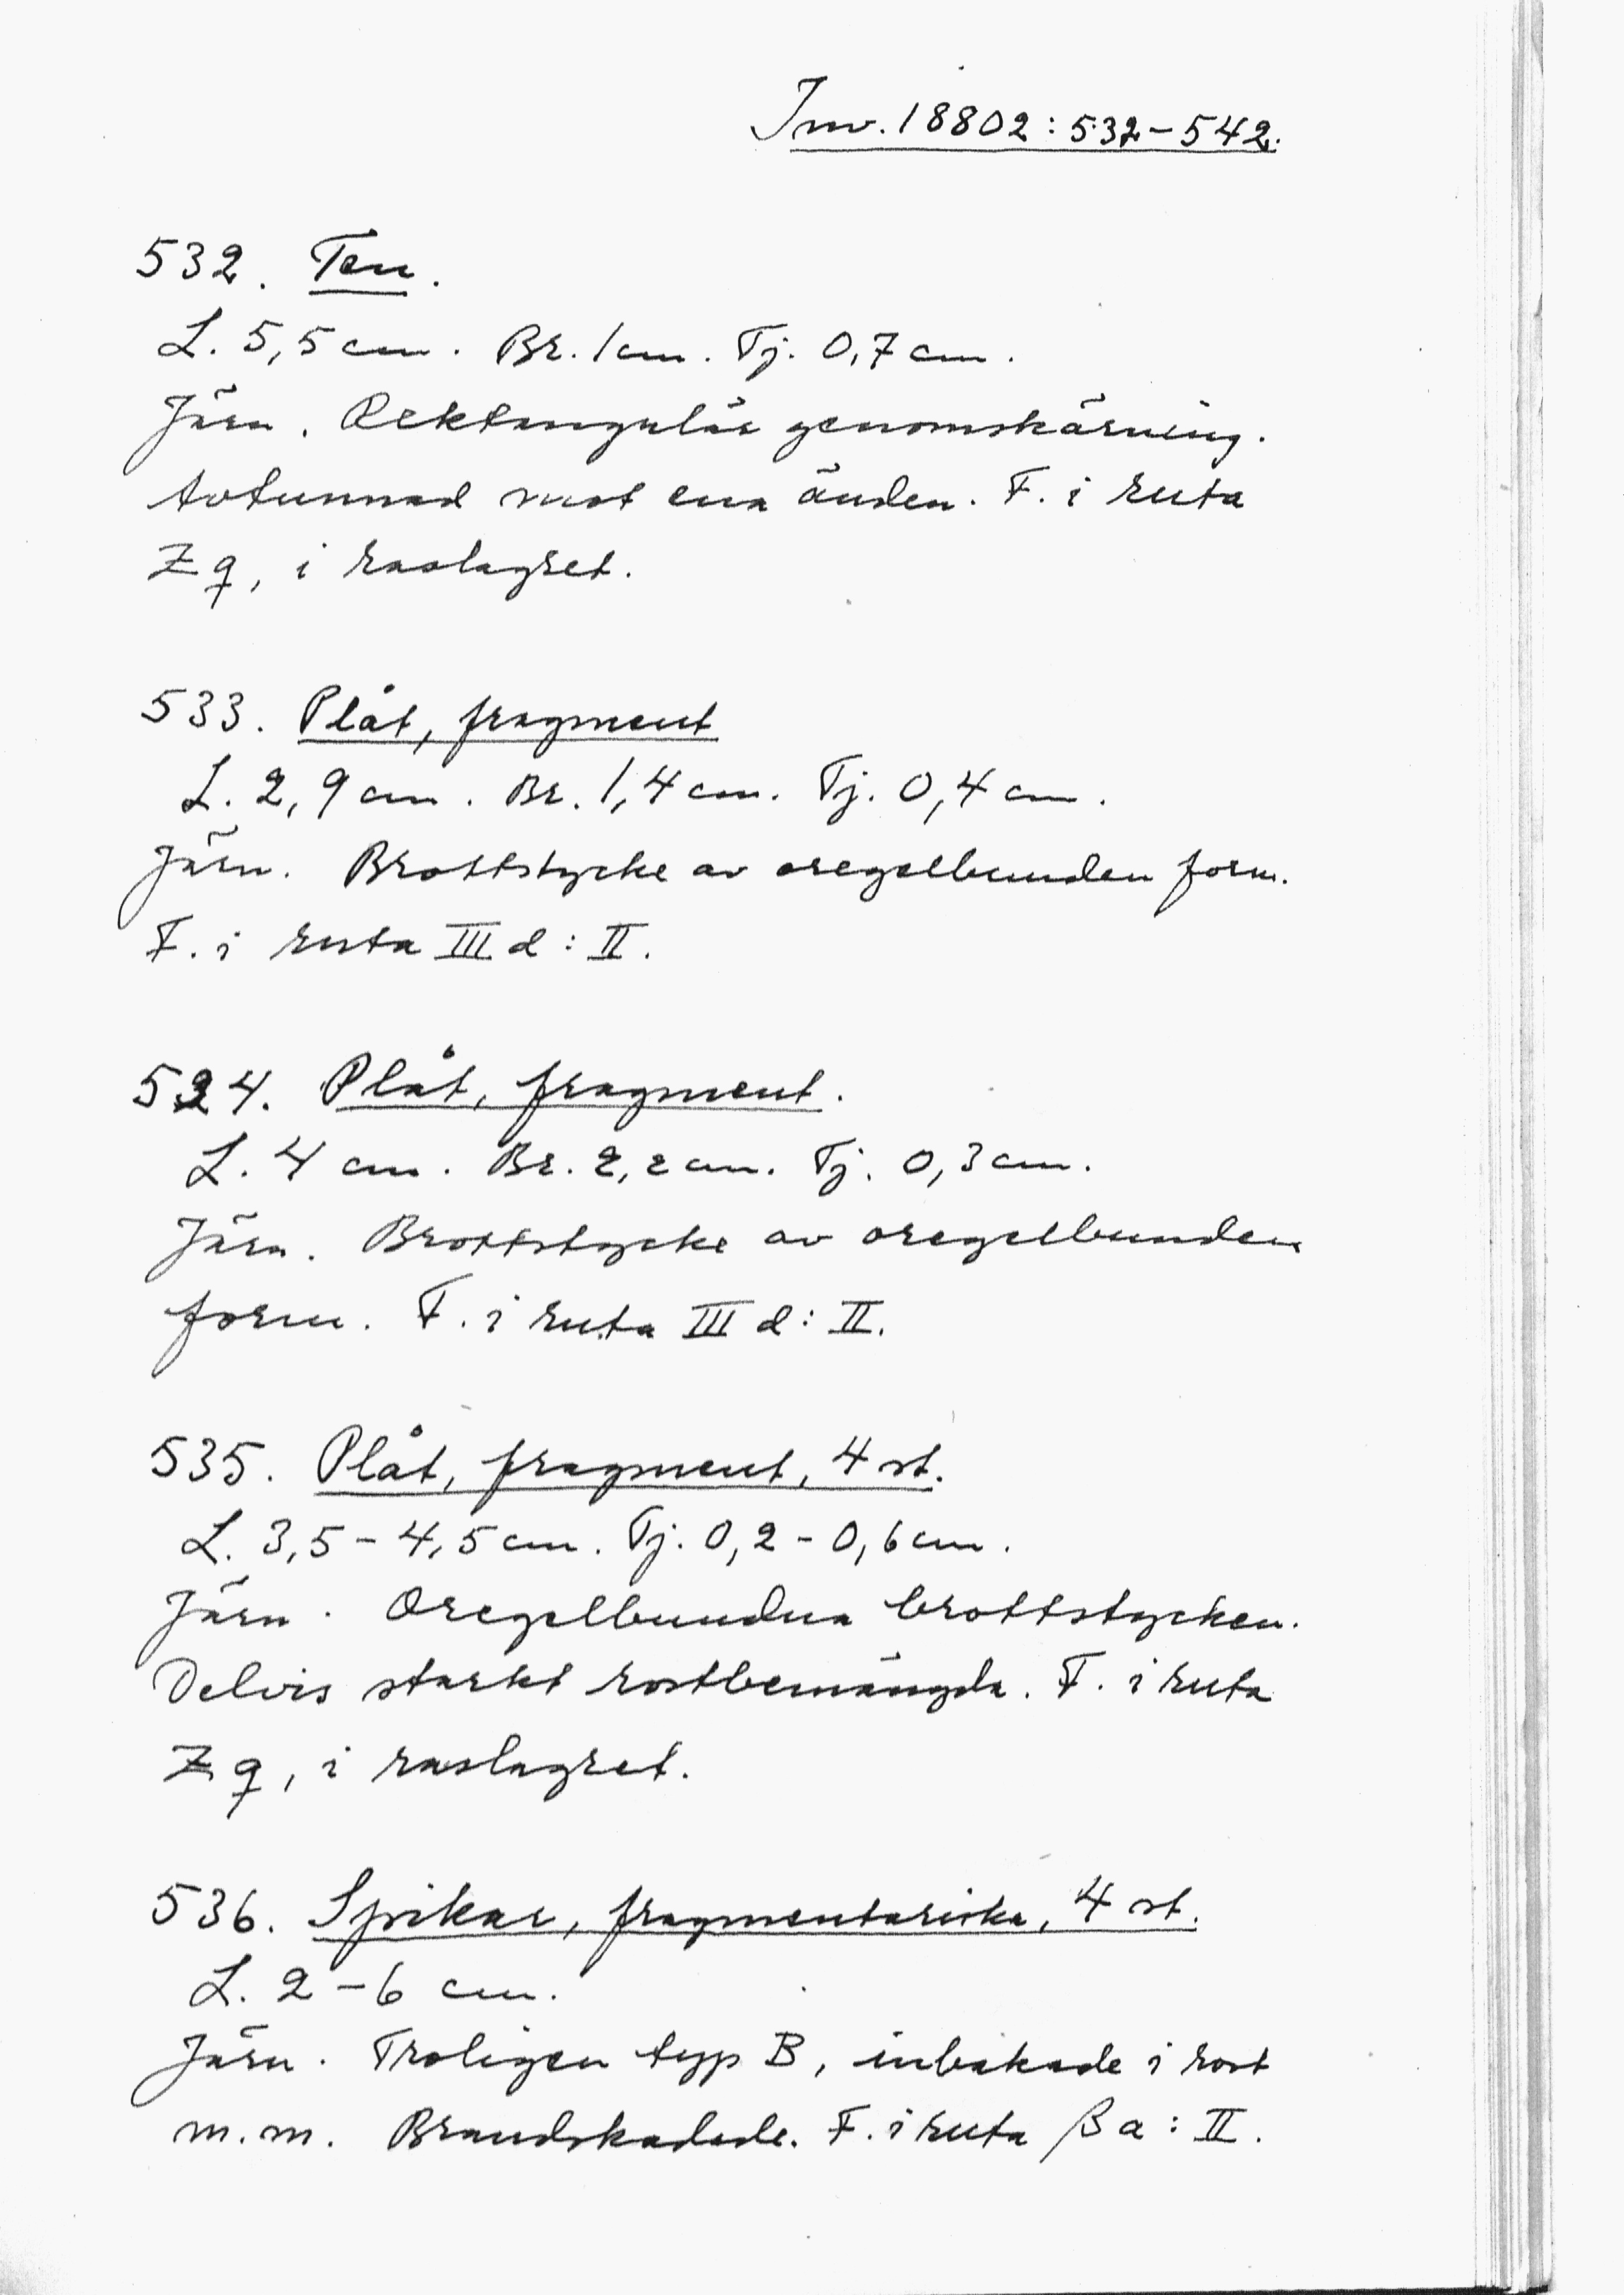 Inv. 18802:532-542.
532. Ten.
L. 5,5 cm. Br. 1 cm. Tj. 0,7 cm.
Järn. Rektangulär genomskärning.
Avtunnad mot ena änden. F. i ruta
Zq, i raslagret.
533. Plåt, fragment
L. 2,9 cm. Br. 1,4 cm. Tj. 0,4 cm.
Järn. Brottstycke av oregelbunden form.
F. i ruta III d:II.
534. Plåt, fragment.
L. 4 cm. Br. 2,2 cm. Tj. 0,3 cm.
Järn. Brottstycke av oregelbunden
form. F. i ruta III d:II.
535. Plåt, fragment, 4 st.
L. 3,5-4,5 cm. Tj. 0,2-0,6 cm.
Järn. Oregelbundna brottstycken.
Delvis starkt rostbemängda. F. i ruta
Zq, i raslagret.
536. Spikar, fragmentariska, 4 st.
L. 2-6 cm.
Järn. Troligen typ B, inbakade i rost
m.m. Brandskadade. F. i ruta βa:II.